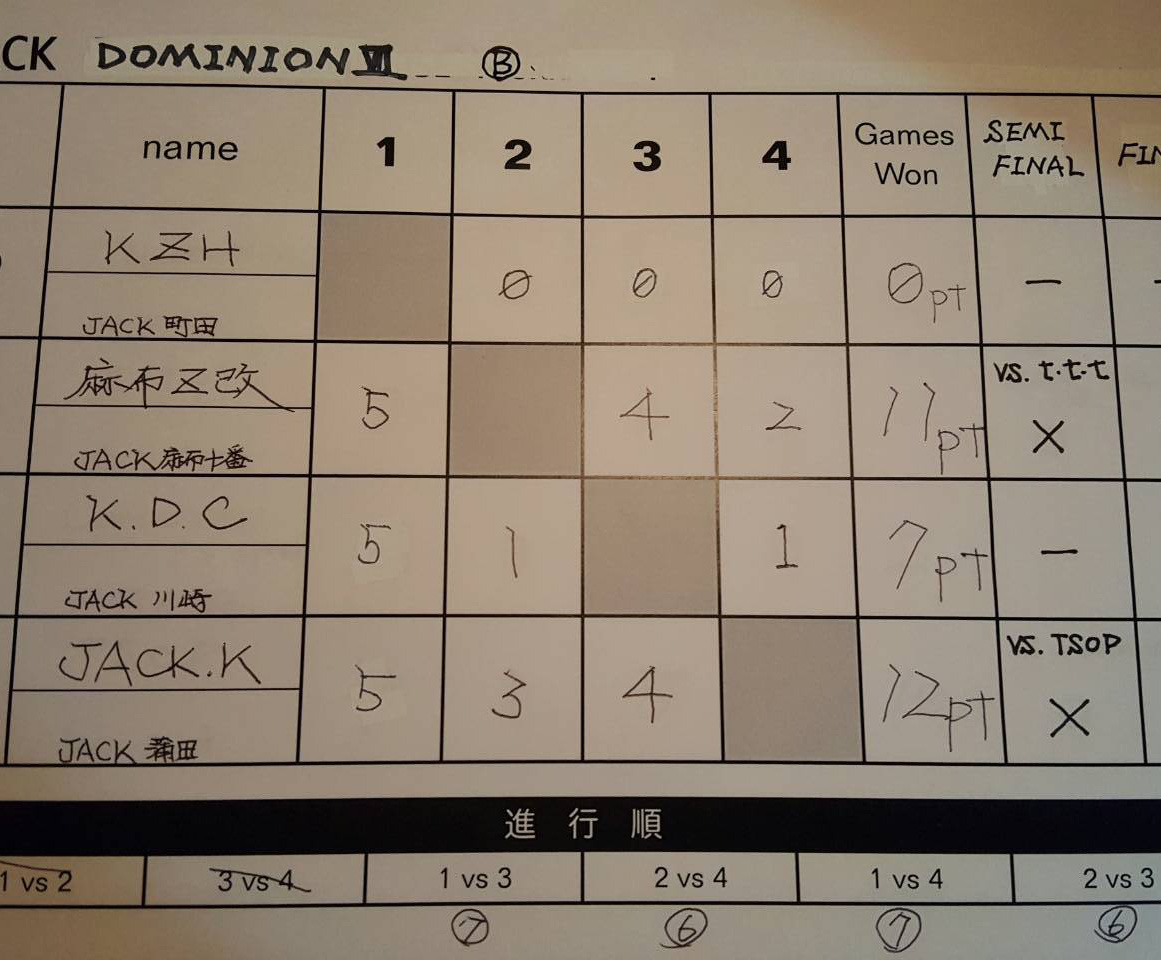 CK DOMINION Ⅶ Ⓑ
name 1 2 3 4 Games Won SEMI FINAL FIN
KZH 0 0 0 0pt —
JACK 町田
麻布Z改 5 4 2 11pt vs. t.t.t ×
JACK 麻布十番
K.D.C 5 1 1 7pt —
JACK 川崎
JACK.K 5 3 4 12pt vs. TSOP ×
JACK 蒲田
進行順
1 vs 2 3 vs 4 1 vs 3 2 vs 4 1 vs 4 2 vs 3
⑦ ⑥ ⑦ ⑥